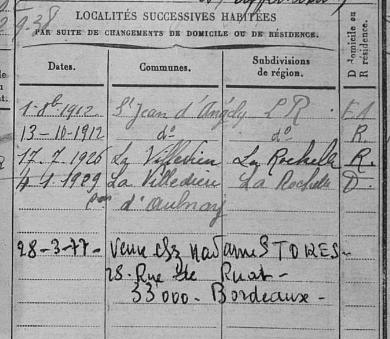 9.38
LOCALITÉS SUCCESSIVES HABITÉES
PAR SUITE DE CHANGEMENTS DE DOMICILE OU DE RÉSIDENCE.
Dates. Communes. Subdivisions de région. D domicile ou R résidence.
1-8bre 1912 St Jean d'Angély L R.
13-10-1912 do do R.
17.7.1926 La Villedieu La Rochelle R.
4.1.1929 La Villedieu La Rochelle D.
par d'Aulnay
28-3-77- Veuve chz Madame STORES-
28. Rue de Ruat-
33000- Bordeaux-